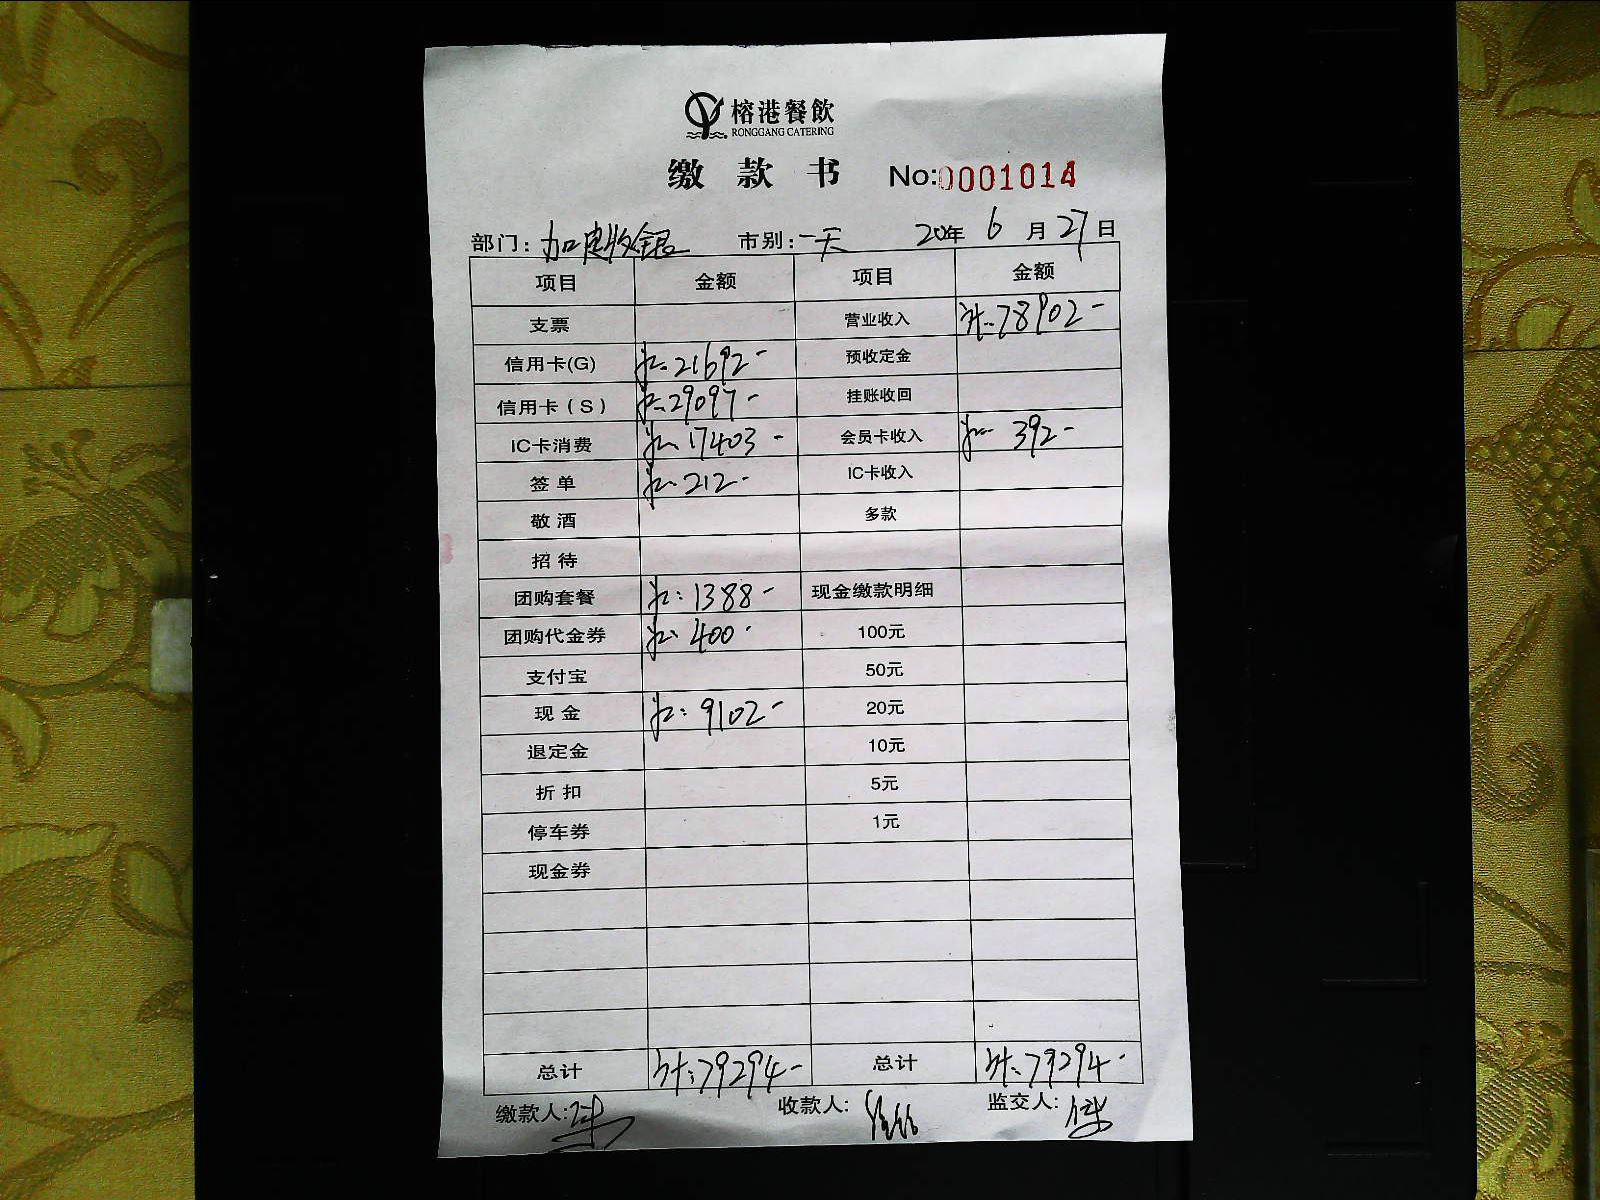 榕港餐飲
RONGGANG CATERING
缴 款 书 No:0001014
部门: 加 收银 市别: 一天 20 年 6 月 27 日
项目 金额 项目 金额
支票 营业收入 计:78902-
信用卡(G) 21692- 预收定金
信用卡(S) 29097- 挂账收回
IC卡消费 17403- 会员卡收入 392-
签单 212- IC卡收入
敬酒 多款
招待
团购套餐 1388- 现金缴款明细
团购代金券 400- 100元
支付宝 50元
现金 9102- 20元
退定金 10元
折扣 5元
停车券 1元
现金券
总计 计:79294- 总计 计:79294-
缴款人: 收款人: 监交人: